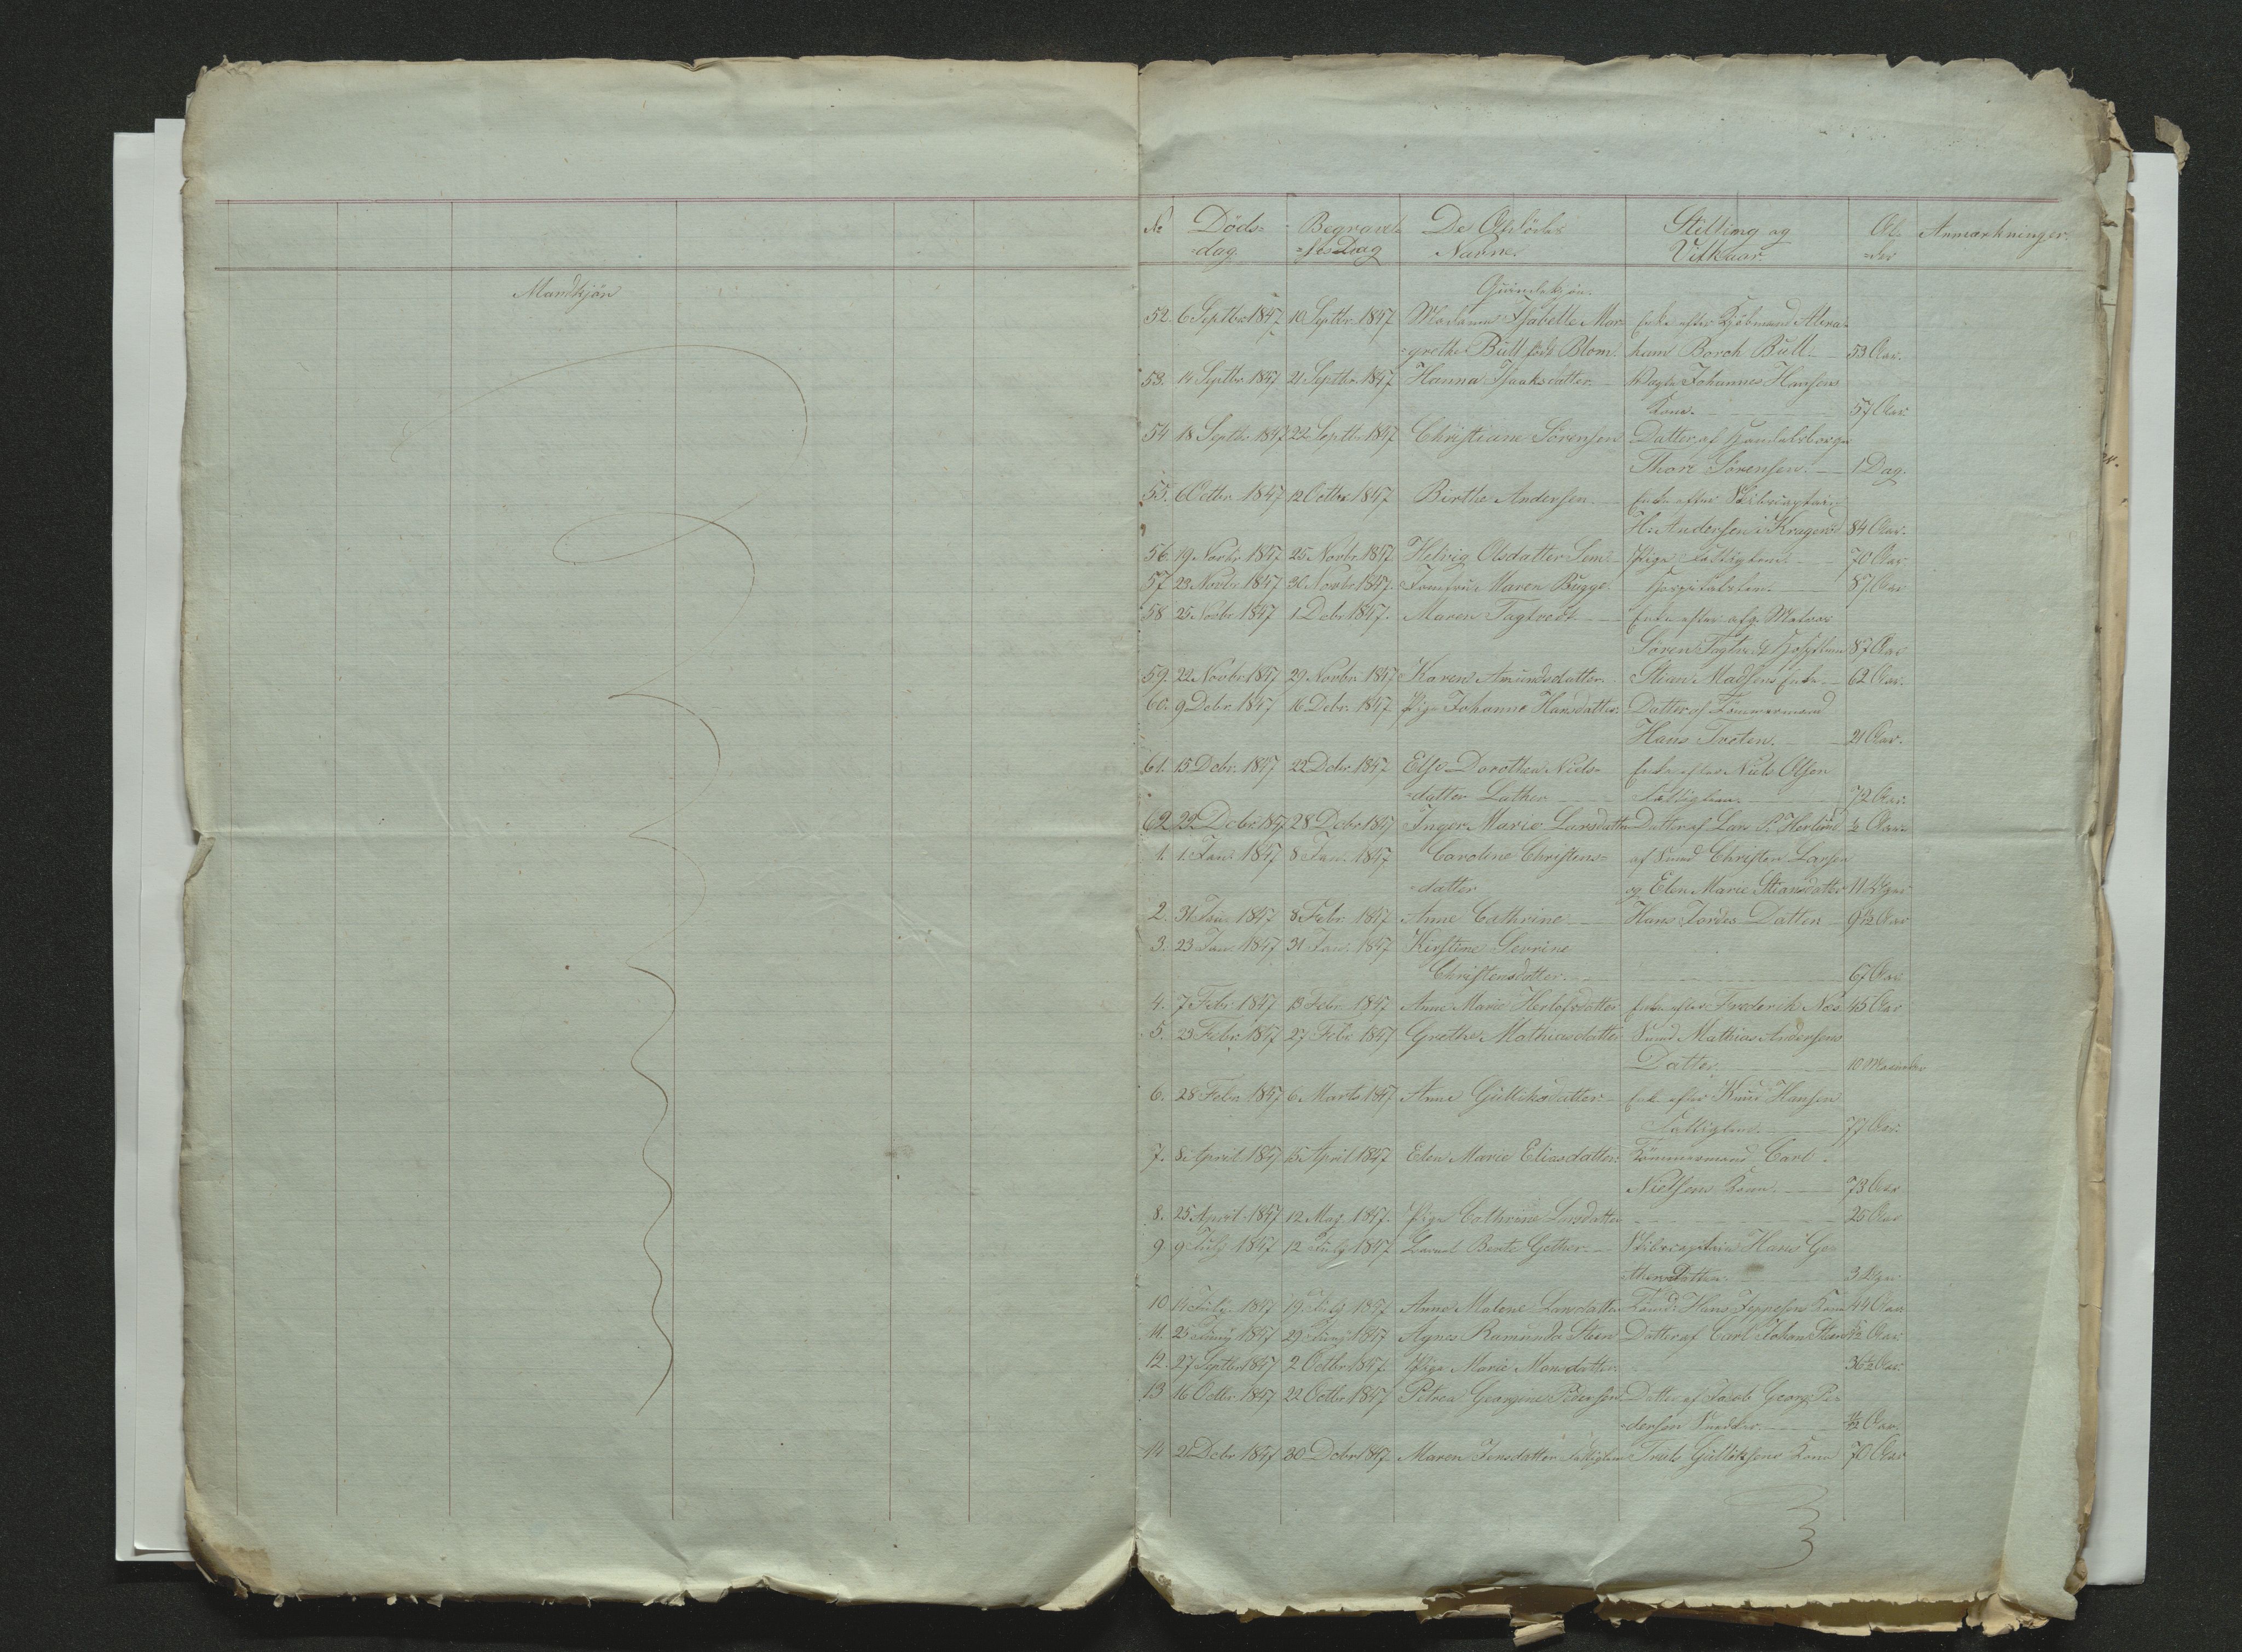 Mandkjön
No Döds= Begravel= De Afdödes Stilling og Al= Anmærkninger.
=dag. =ses Dag Navne. Vilkaar. =der
Qvindekjön.
52. 6 Septbr 1847 10 Septbr 1847 Madame Isabelle Mar= Enke efter Kjöbmand Abra=
=grethe Bull födt Blom. ham Borch Bull. 53 Aar.
53. 14 Septbr 1847 21 Septbr 1847 Hanna Isaksdatter Johannes Hansens
Kone. 57 Aar.
54 18 Septbr 1847 22 Septbr 1847 Christiane Sörensen Datter af Handelsborger
Thore Sörensen. 1 Dag.
55. 6 Octbr 1847 12 Octbr 1847 Birthe Andersen Enke efter Skibscaptain
H. Andersen i Krageröe 84 Aar.
56 19 Novbr 1847 25 Novbr 1847 Helvig Olsdatter Sem Pige Fattiglem 70 Aar
57 23 Novbr 1847 30 Novbr 1847. Jomfru Maren Bugge Hospitalslem. 87 Aar
58 25 Novbr 1847 1 Debr 1847. Maren Tagtvedt Enke efter afg.
Sören Tagtvedt 87 Aar
59. 22 Novbr 1847 29 Novbr 1847 Karen Amundsdatter Stian Madsens Enke 62 Aar.
60. 9 Debr. 1847 16 Debr. 1847 Pige Johanne Hansdatter. Datter af Tömmermand
Hans Treten. 21 Aar.
61. 15 Debr. 1847 22 Debr. 1847 Else Dorothea Niels= Enke efter Niels Olsen
=datter Fattiglem. 72 Aar.
62 22 Debr 1847 28 Debr 1847 Inger Marie Larsdatter Datter af Lars P. ½ Aar.
1. 1. Jan. 1847 8 Jan. 1847 Caroline Christens= af Smed Christen Larsen
=datter og Elen Marie Stiansdatter 11 Uger
2. 31 Jan. 1847 8 Febr. 1847 Anne Cathrine Hans Datter 9½ Aar
3. 23 Jan. 1847 31 Jan. 1847 Kirstine Severine
Christensdatter. 67 Aar
4. 7 Febr. 1847 13 Febr. 1847 Anne Marie Herlofsdatter Enke efter Frederik Næs 45 Aar
5. 23 Febr. 1847 27 Febr 1847 Grethe Mathiasdatter Smed Mathias Andersens
Datter 10 Maaneder
6. 28 Febr. 1847 6 Marts 1847 Anne Gulliksdatter Enke efter Knud Hansen
Fattiglem. 77 Aar.
7. 8 April 1847 15 April 1847 Elen Marie Eliasdatter. Tömmermand Carl
Nielsens Kone. 73 Aar
8. 25 April 1847 12 May 1847. Pige Cathrine Larsdatter 25 Aar
9 9 July 1847 12 July 1847 Berte Gether Skibscaptain Hans Ge=
=thers Datter. 3 Uger
10 14 July 1847 19 July 1847 Anne Malene Larsdatter Hans Jeppesens Kone 44 Aar
11. 25 Juny 1847 29 Juny 1847 Agnes Ramunda Steen Datter af Carl Johan Steen ½ Aar
12. 27 Septbr 1847 2 Octbr 1847 Pige Marie Monsdatter 36½ Aar
13 16 Octbr 1847 22 Octbr 1847 Petrea Georgine Pedersen Datter af Jacob Georg Pe=
=dersen ½ Aar.
14 21 Debr 1847 30 Debr 1847 Maren Jensdatter Fattiglem Truls Gulliksens Kone 70 Aar